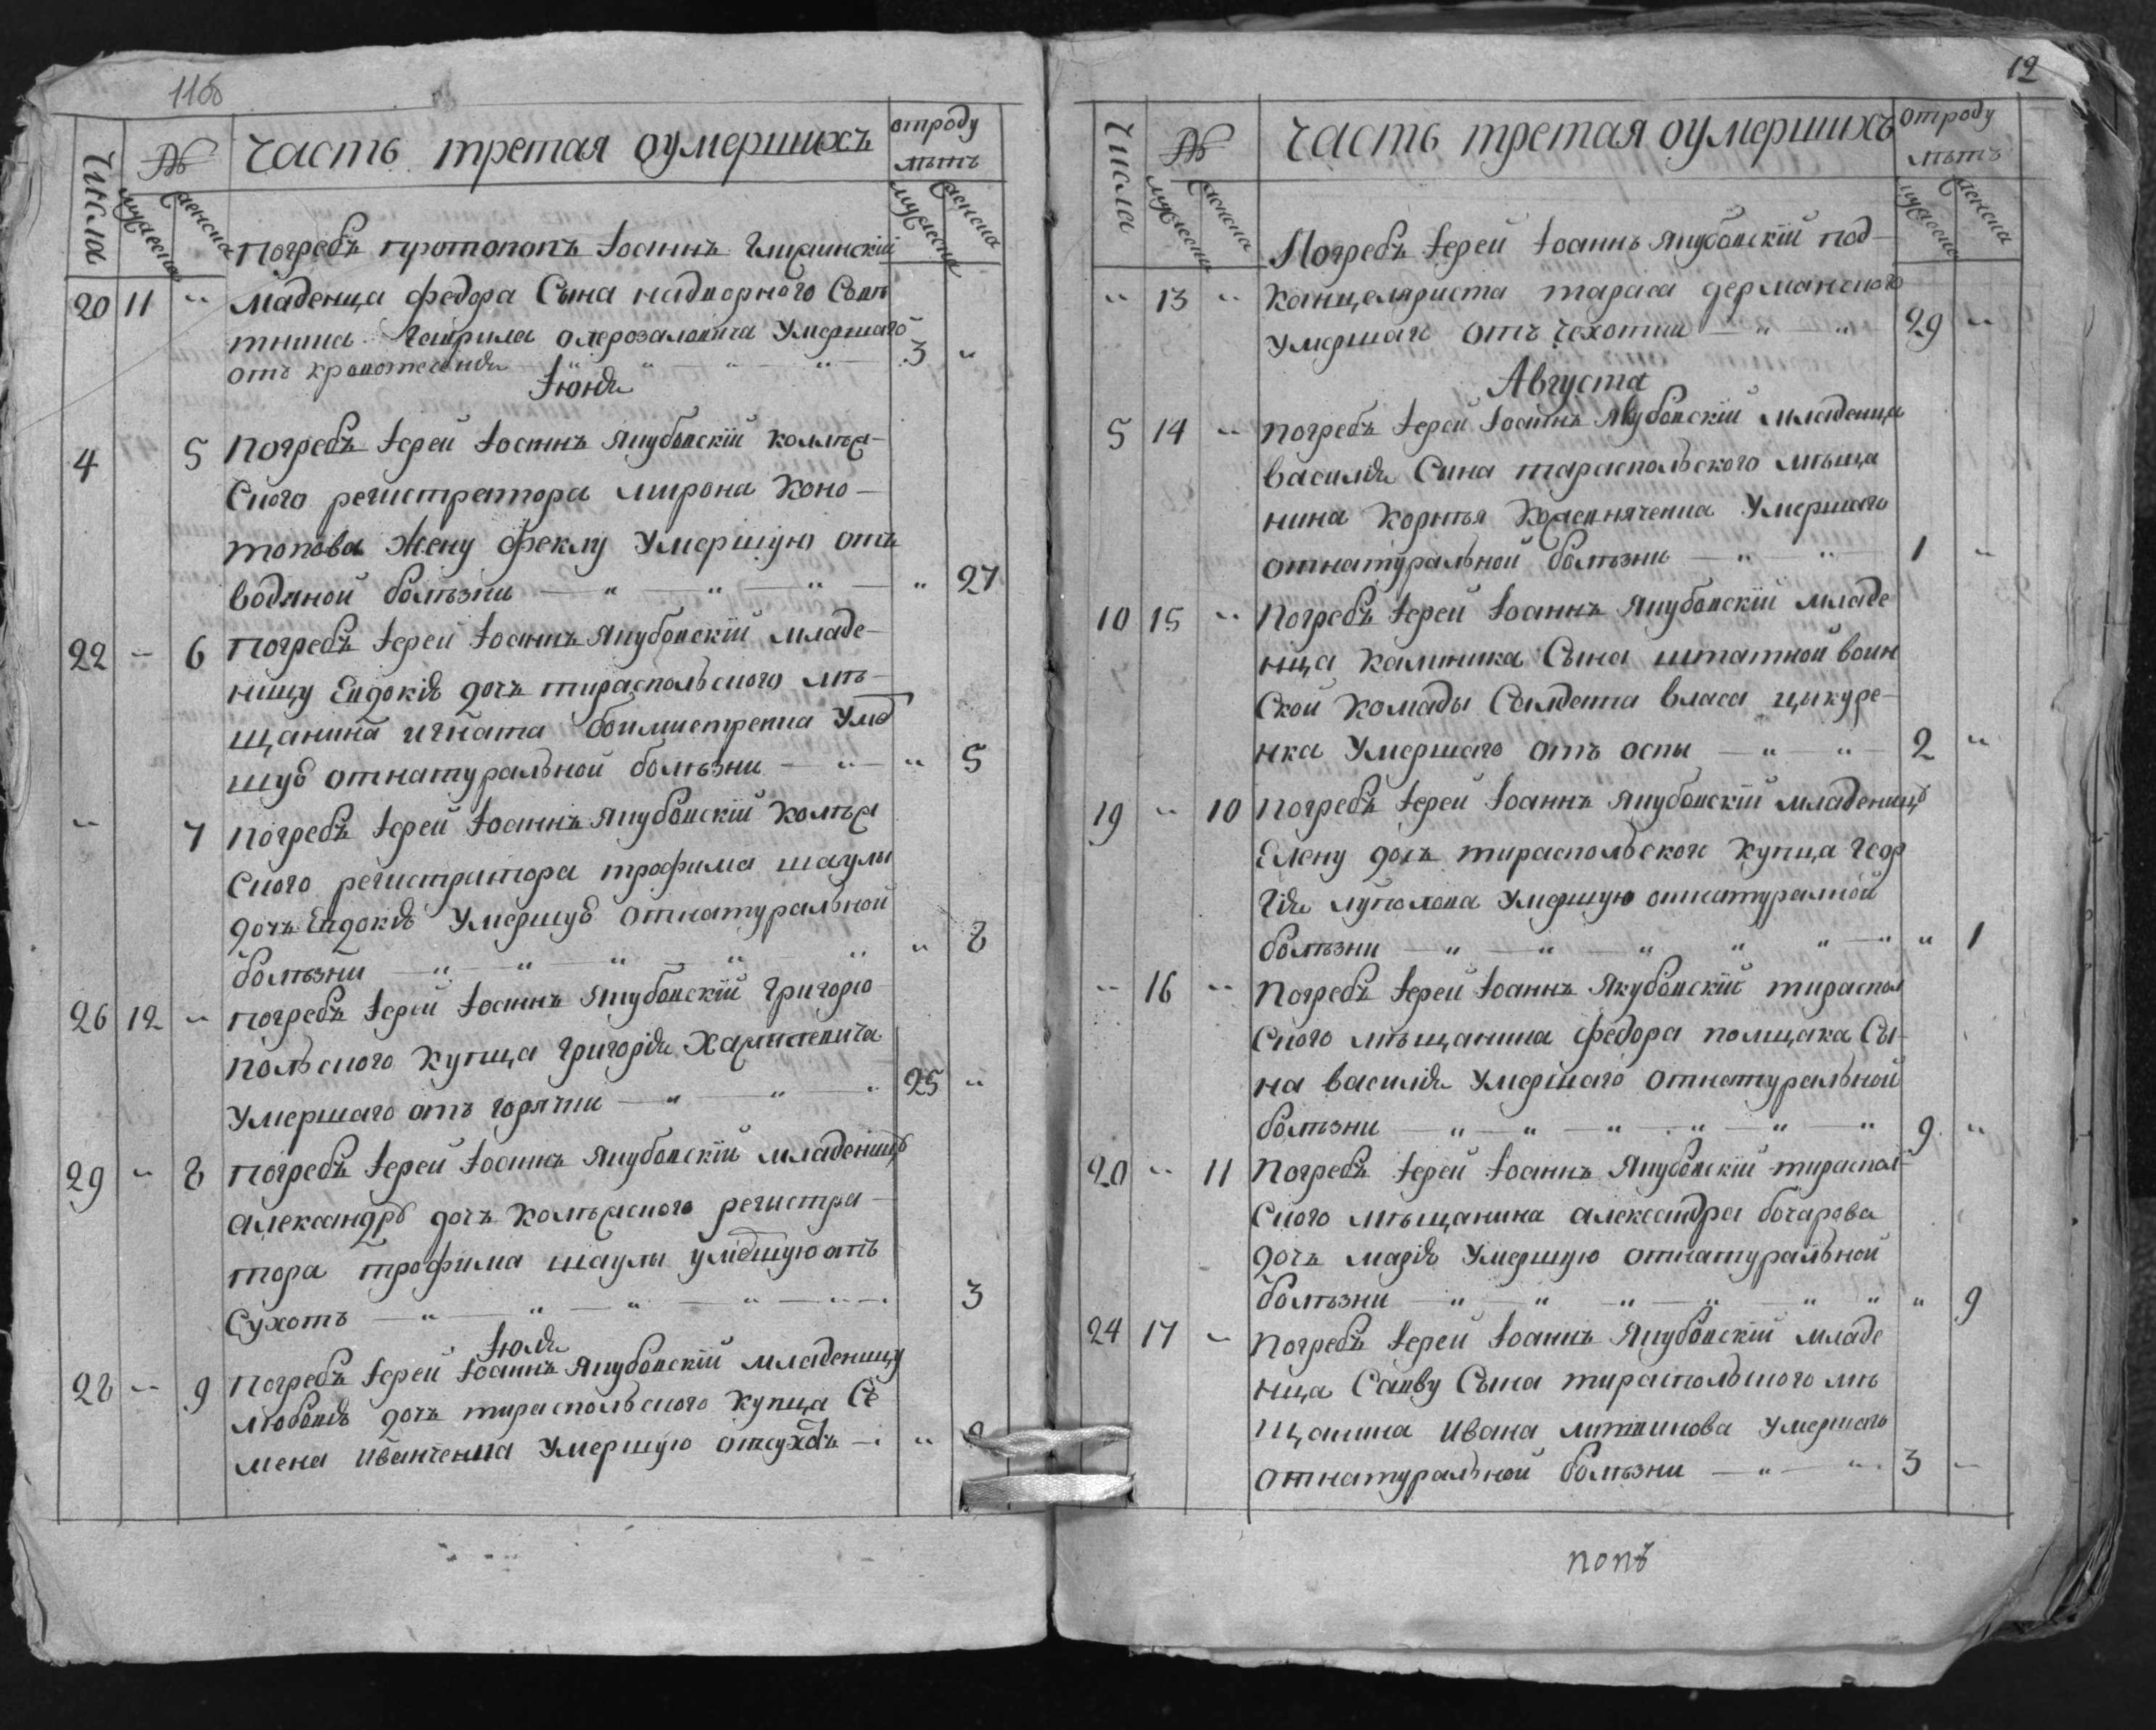 11об
Числа
№
мужеска
женска
Часть третая оумершихъ
отроду
лѣтъ
мужеска
женска
Погребъ протопопъ Іоаннъ
20 11 " младенца федора Сына надворного Совѣ
тника Гаврила Умершаго
отъ кровотеченія — " — " — " 3 "
Іюня
4 5 Погребъ Іерей Іоаннъ Якубовскій коллеж-
ского регистратора мирона Коно-
топова жену феклу Умершую отъ
водяной болѣзни — " — " — " — " 27
22 " 6 Погребъ Іерей Іоаннъ Якубовскій младе-
ницу Евдокію дочь тираспольского мѣ-
щанина игната Умер
шую отнатуральной болѣзни — " — " 5
" 7 Погребъ Іерей Іоаннъ Якубовскій Колеж
ского регистратора трофима шаулы
дочь Евдокію Умершую отнатуральной
болѣзни — " — " — " — " — " " 8
26 12 " Погребъ Іерей Іоаннъ Якубовскій Григорио
польского купца григорія
Умершаго отъ горячки — " — " — " 25 "
29 " 8 Погребъ Іерей Іоаннъ Якубовскій младеницу
александру дочь Колежского регистра-
тора трофима шаулы умершую отъ
Сухотъ — " — " — " — " — " 3
Іюля
28 " 9 Погребъ Іерей Іоаннъ Якубовскій младеницу
любовію дочь тираспольского купца Се
мена Иванченка Умершую отсухотъ — "
12
Числа
№
мужеска
женска
Часть третая оумершихъ
отроду
лѣтъ
мужеска
женска
Погребъ Іерей Іоаннъ Якубовскій под-
" 13 " Канцеляриста тараса держанского
умершаго отъ чехотки — " — " 29 "
Августа
5 14 " Погребъ Іерей Іоаннъ Якубовскій младенца
василія Сына тараспольского мѣща
нина Корнѣя Умершаго
отнатуральной болѣзни — " — " 1 "
10 15 " Погребъ Іерей Іоаннъ Якубовскій младе
нца калиника Сына штатной воин
ской Комады Солдата власа цыкуре-
нка Умершаго отъ оспы — " — " 2 "
19 " 10 Погребъ Іерей Іоаннъ Якубовскій младеницу
Елену дочь тираспольского Купца Геор
гія луполова Умершую отнатуралной
болѣзни — " — " — " — " — " 1
" 16 " Погребъ Іерей Іоаннъ Якубовскій тираспол
ского мѣщанина федора полщака Сы-
на василія Умершаго отнатуральной
болѣзни — " — " — " — " — " 9 "
20 " 11 Погребъ Іерей Іоаннъ Якубовскій тираспол-
ского мѣщанина александра бочарова
дочь марію Умершую отнатуральной
болѣзни — " — " — " — " — " " 9
24 17 " Погребъ Іерей Іоаннъ Якубовскій младе
нца Савву Сына тираспольского мѣ
щанина Ивана литвинова умершаго
отнатуральной болѣзни — " — " 3 "
попъ